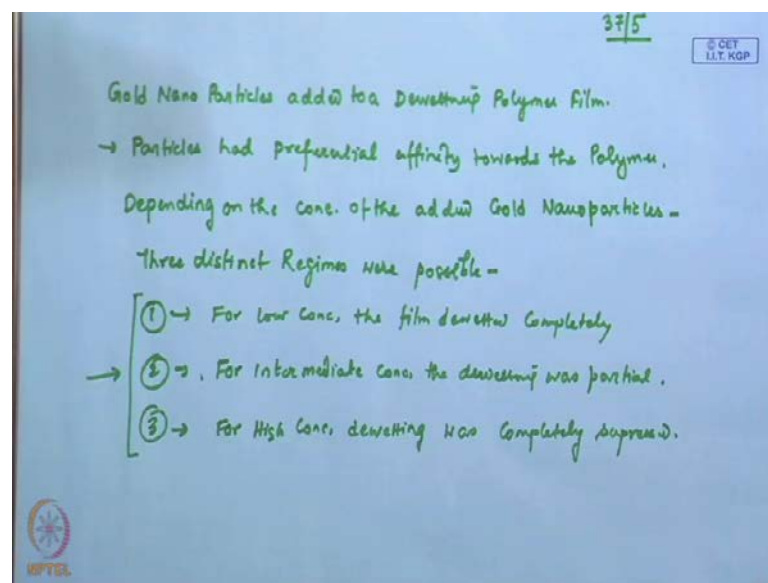 37/5
© CET
I.I.T. KGP
Gold Nano Particles added to a Dewetting Polymer Film.
→ Particles had preferential affinity towards the Polymer.
Depending on the conc. of the added Gold Nanoparticles -
Three distinct Regimes were possible -
① → For low conc, the film dewetted completely
→ ② → . For intermediate conc, the dewetting was partial.
③ → For High conc, dewetting was completely supressed.
NPTEL